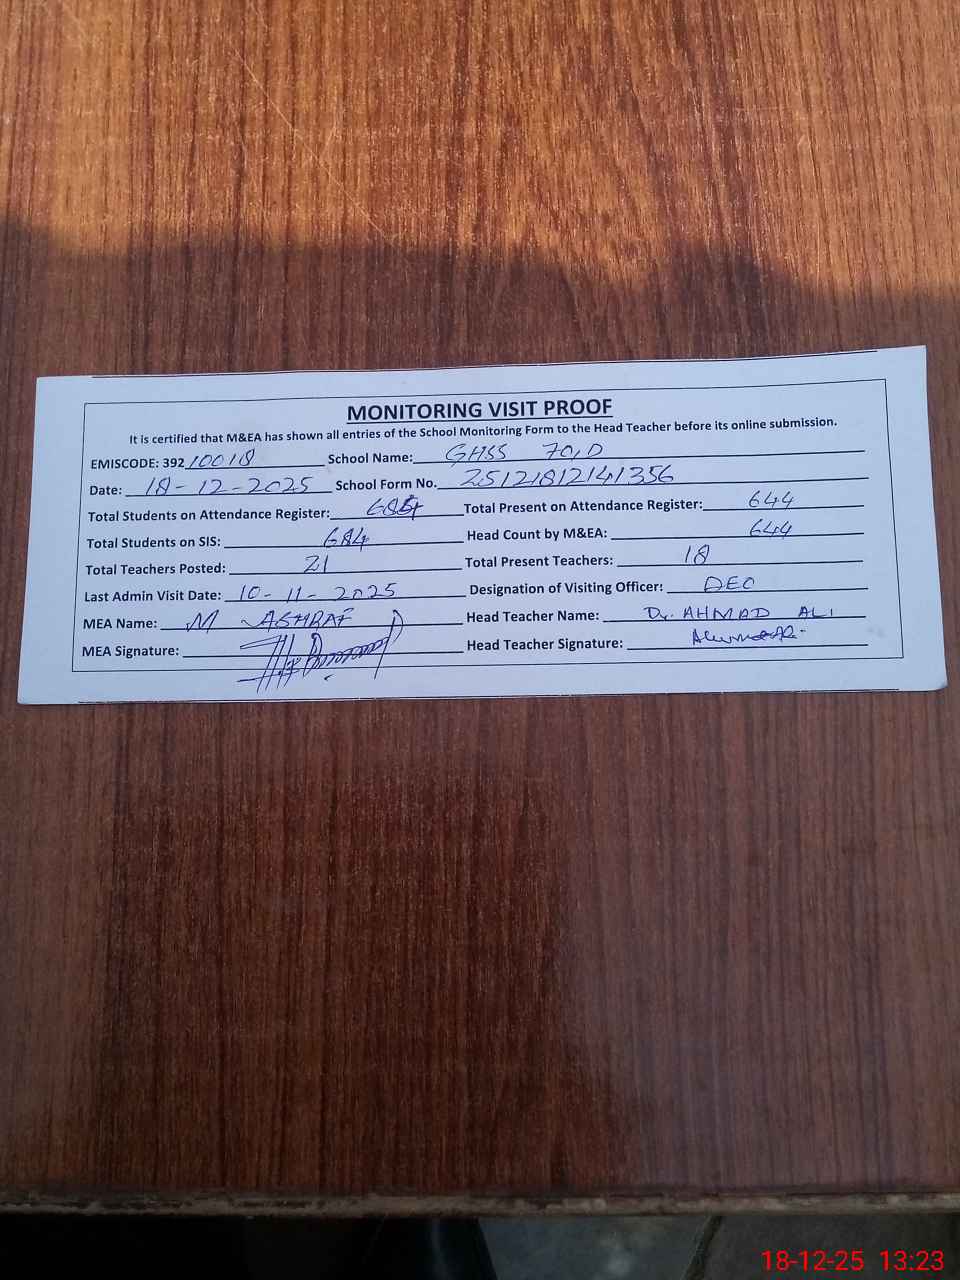 MONITORING VISIT PROOF
It is certified that M&EA has shown all entries of the School Monitoring Form to the Head Teacher before its online submission.
EMISCODE: 392 10018 School Name: GHSS 70,D
Date: 18-12-2025 School Form No. 2512181214 1356
Total Students on Attendance Register: 684 Total Present on Attendance Register: 644
Total Students on SIS: 684 Head Count by M&EA: 644
Total Teachers Posted: 21 Total Present Teachers: 18
Last Admin Visit Date: 10-11-2025 Designation of Visiting Officer: DEO
MEA Name: M ASHRAF Head Teacher Name: Dr. AHMAD ALI
MEA Signature: Head Teacher Signature:
18-12-25 13:23